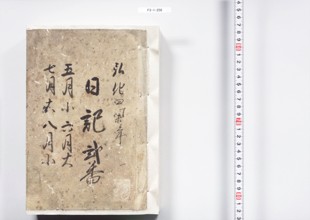 弘化
日記 弐番
五月小 六月大
七月大 八月小